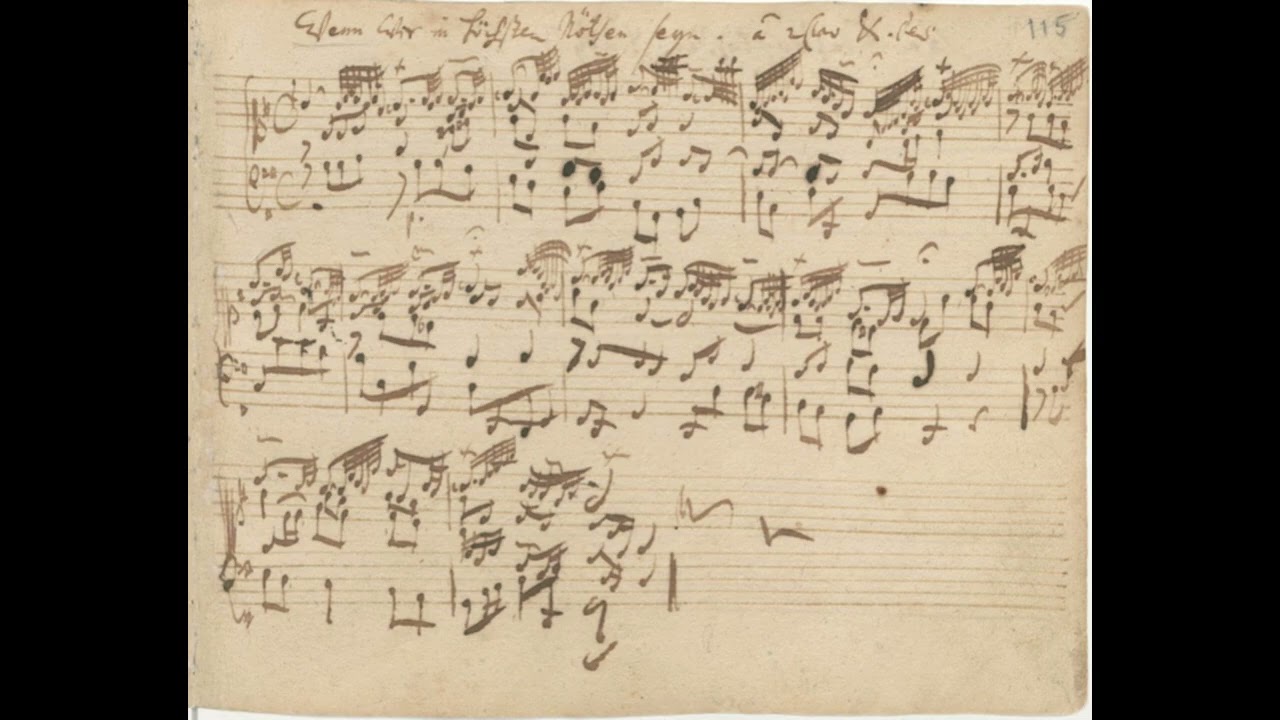 Wenn Wir in höchsten Nöthen seyn. à 2 Clav & Ped. 115